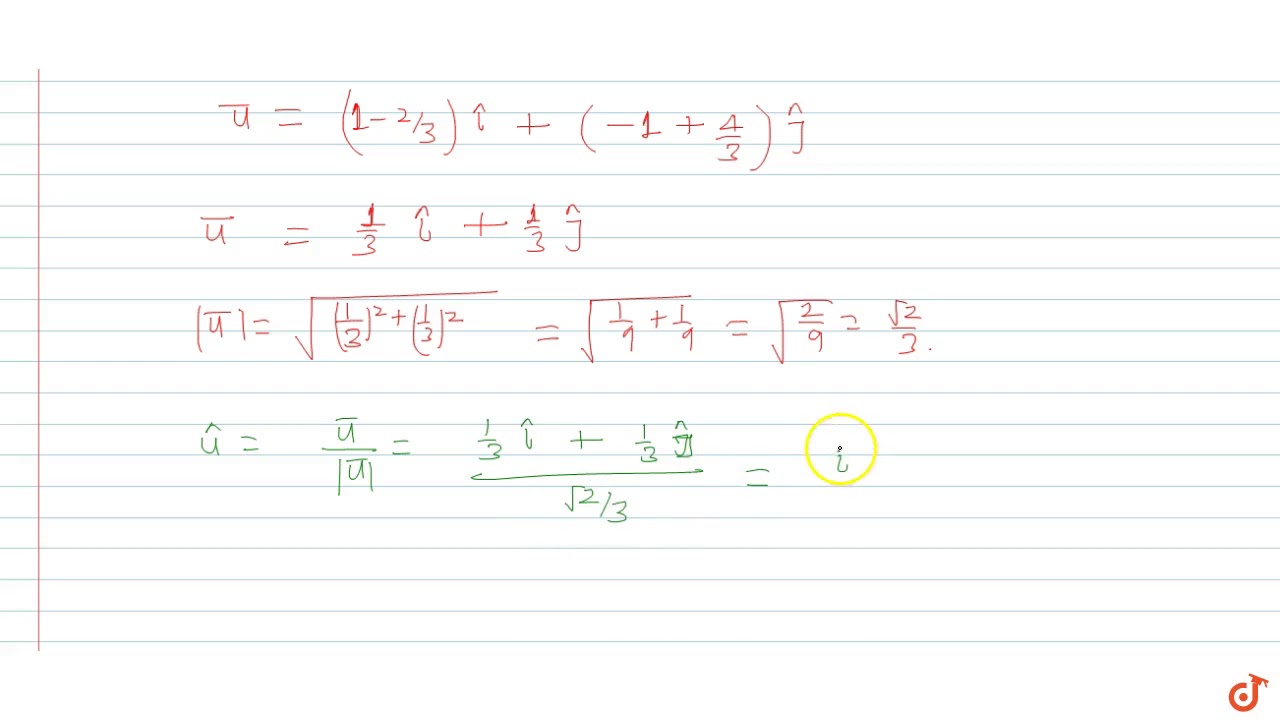 u̅ = (1 - 2/3) î + (-1 + 4/3) ĵ
u̅ = 1/3 î + 1/3 ĵ
|u̅| = √((1/3)² + (1/3)²) = √(1/9 + 1/9) = √(2/9) = √2/3.
û = u̅/|u̅| = (1/3 î + 1/3 ĵ)/(√2/3) = i